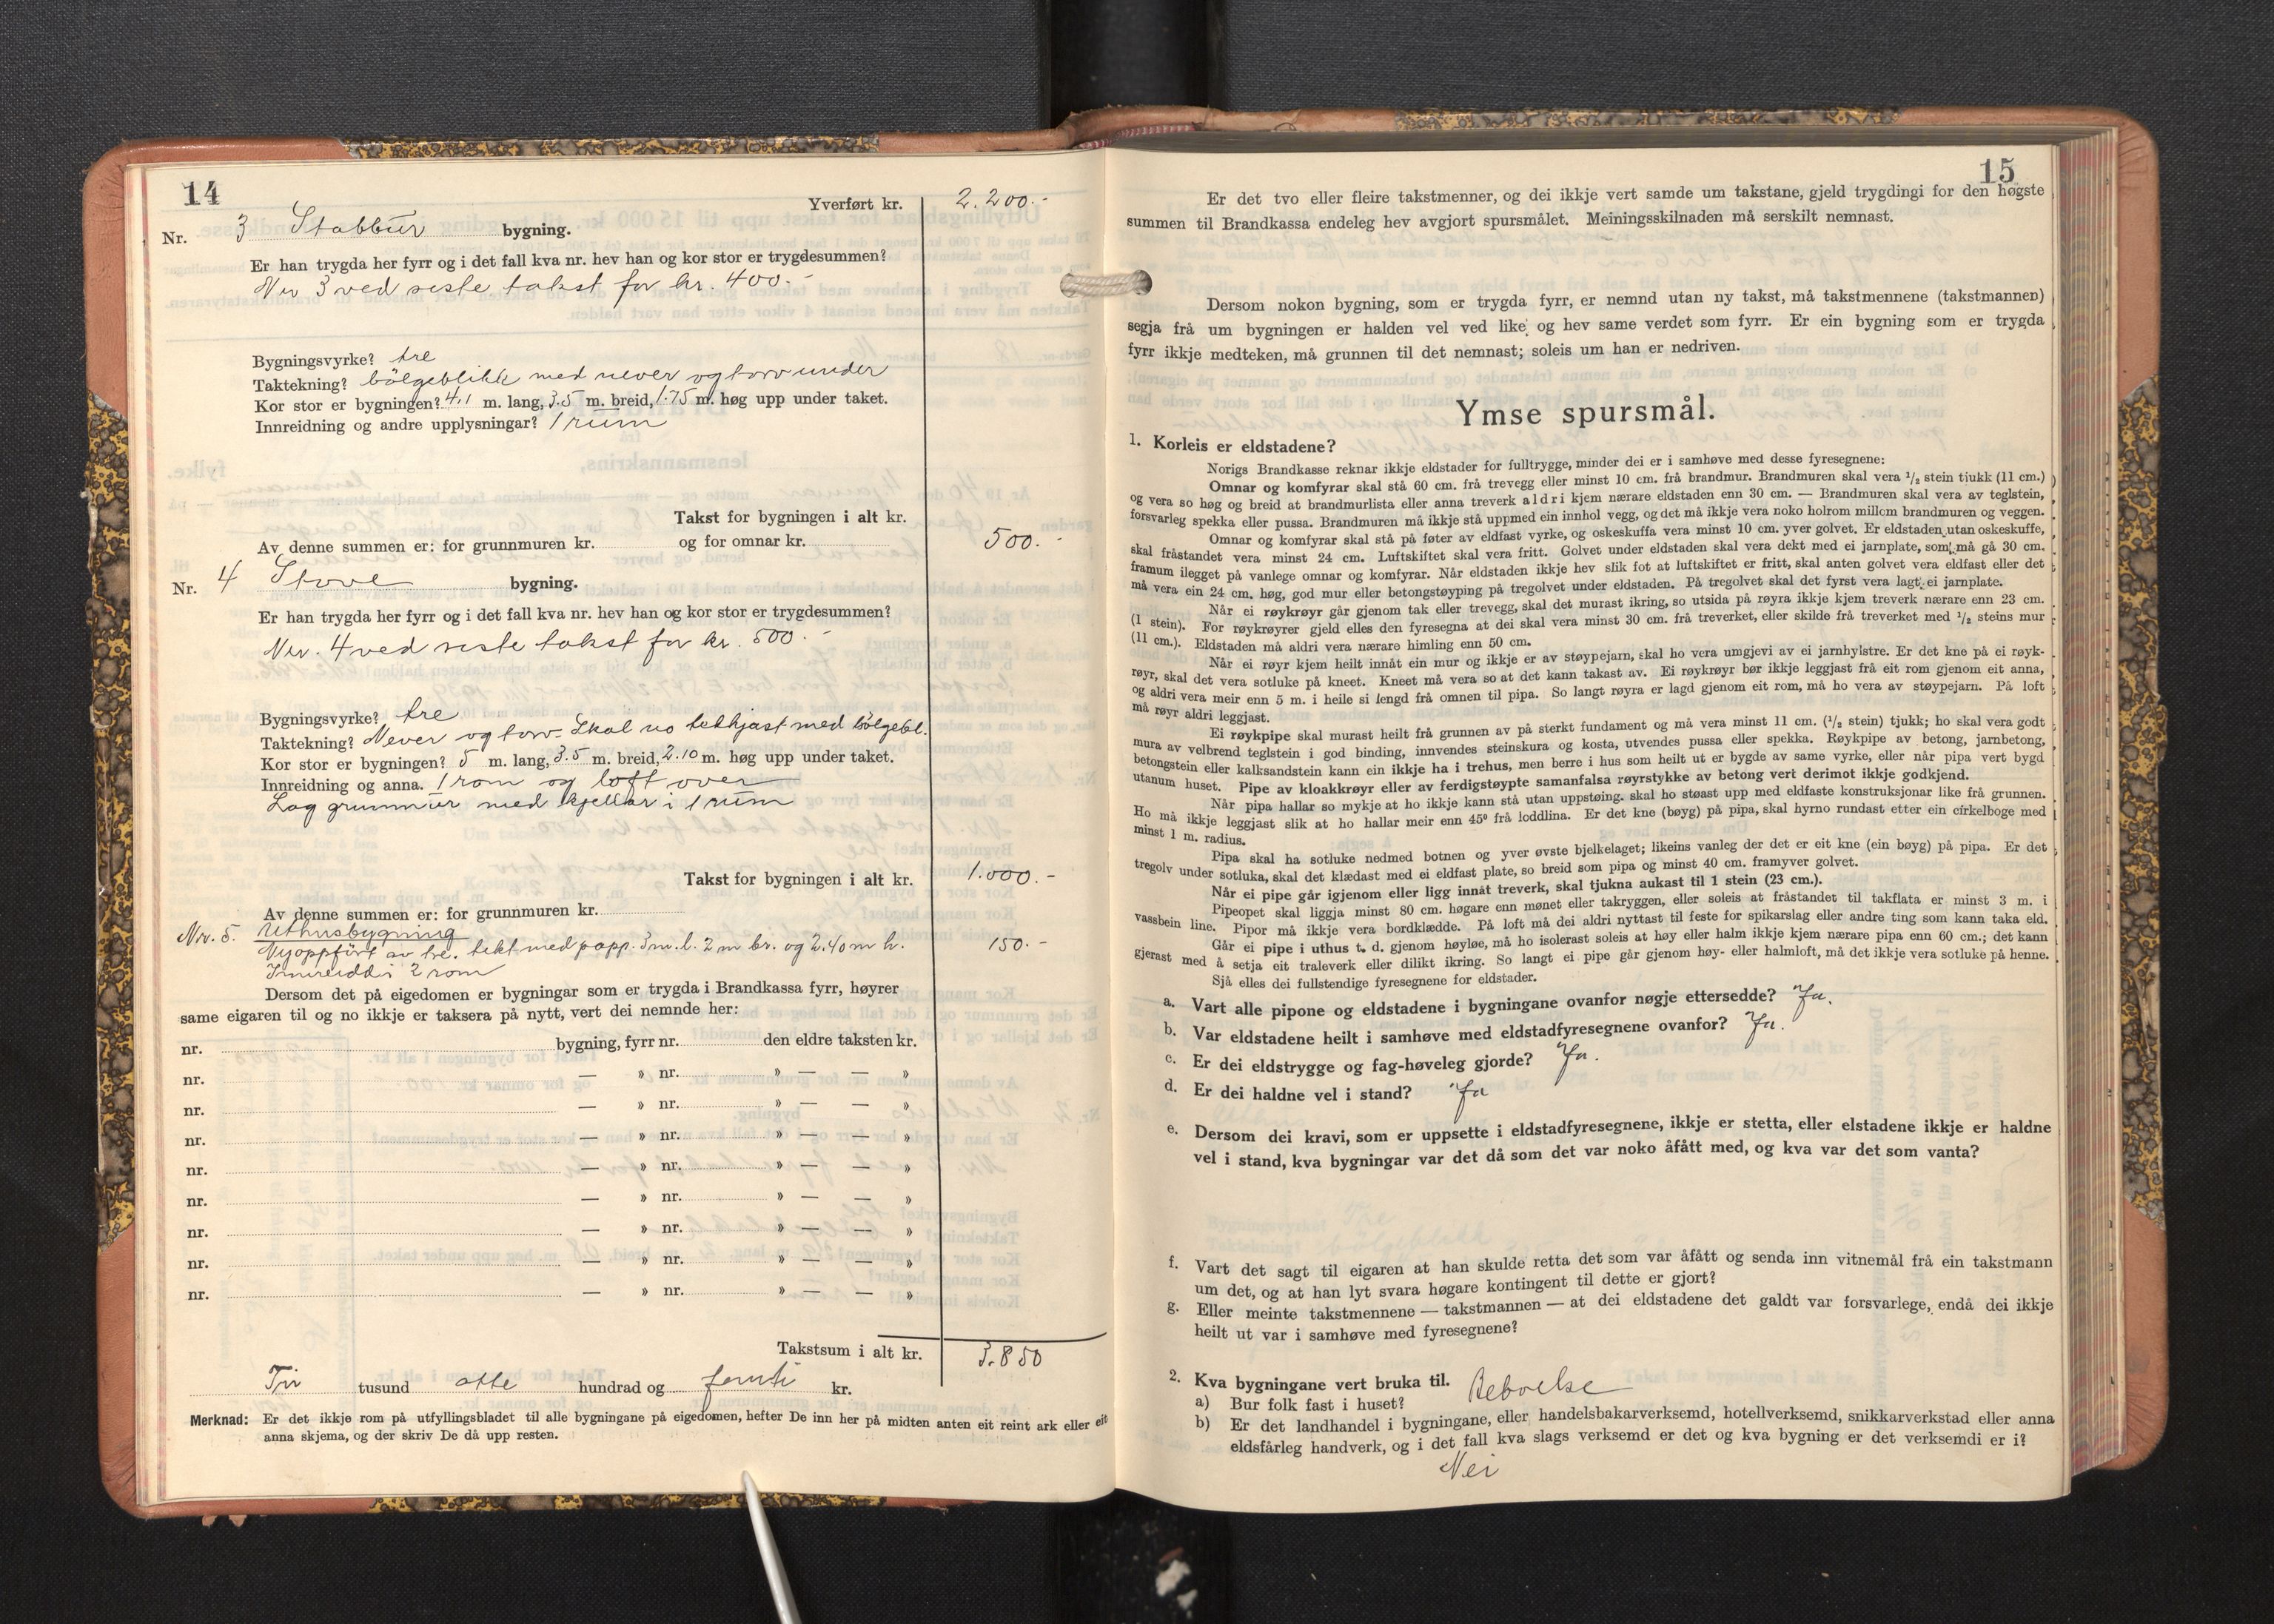 14
Yverført kr. 2.200.-
Nr. 3 Stabbur bygning.
Er han trygda her fyrr og i det fall kva nr. hev han og kor stor er trygdesummen?
Nr 3 ved siste takst for kr. 400.-
Bygningsvyrke? tre
Taktekning? bölgeblikk med never og torv under
Kor stor er bygningen? 4,1 m. lang, 3.5 m. breid, 1.75 m. høg upp under taket.
Innreidning og andre upplysningar? 1 rum
Takst for bygningen i alt kr. 500.-
Av denne summen er: for grunnmuren kr. og for omnar kr.
Nr. 4 Stove bygning.
Er han trygda her fyrr og i det fall kva nr. hev han og kor stor er trygdesummen?
Nr. 4 ved siste takst for kr. 500.-
Bygningsvyrke? tre
Taktekning? Never og torv. Skal no tekkjast med bölgebl.
Kor stor er bygningen? 5 m. lang, 3.5 m. breid, 2.10 m. høg upp under taket.
Innreidning og anna. 1 rom og loft over
Lag grunnmur med kjellar i 1 rum
Takst for bygningen i alt kr. 1.000.-
Av denne summen er: for grunnmuren kr.
Nr. 5. Uthusbygning
Nyoppfört av tre. tekt med papp. 3 m. l. 2 m br. og 2.40 m h. 150.-
Innreidd i 2 rom
Dersom det på eigedomen er bygningar som er trygda i Brandkassa fyrr, høyrer
same eigaren til og no ikkje er taksera på nytt, vert dei nemnde her:
nr. bygning, fyrr nr. den eldre taksten kr.
nr. — » nr. » — — »
nr. — » nr. » — — »
nr. — » nr. » — — »
nr. — » nr. » — — »
nr. — » nr. » — — »
nr. — » nr. » — — »
nr. — » nr. » — — »
nr. — » nr. » — — »
Takstsum i alt kr. 3.850
Tri tusund otte hundrad og femti kr.
Merknad: Er det ikkje rom på utfyllingsbladet til alle bygningane på eigedomen, hefter De inn her på midten anten eit reint ark eller eit
anna skjema, og der skriv De då upp resten.
15
Er det tvo eller fleire takstmenner, og dei ikkje vert samde um takstane, gjeld trygdingi for den høgste
summen til Brandkassa endeleg hev avgjort spursmålet. Meiningsskilnaden må serskilt nemnast.
Dersom nokon bygning, som er trygda fyrr, er nemnd utan ny takst, må takstmennene (takstmannen)
segja frå um bygningen er halden vel ved like og hev same verdet som fyrr. Er ein bygning som er trygda
fyrr ikkje medteken, må grunnen til det nemnast; soleis um han er nedriven.
Ymse spursmål.
1. Korleis er eldstadene?
Norigs Brandkasse reknar ikkje eldstader for fulltrygge, minder dei er i samhøve med desse fyresegnene:
Omnar og komfyrar skal stå 60 cm. frå trevegg eller minst 10 cm. frå brandmur. Brandmuren skal vera 1/2 stein tjukk (11 cm.)
og vera so høg og breid at brandmurlista eller anna treverk aldri kjem nærare eldstaden enn 30 cm. — Brandmuren skal vera av teglstein,
forsvarleg spekka eller pussa. Brandmuren må ikkje stå uppmed ein innhol vegg, og det må ikkje vera noko holrom millom brandmuren og veggen.
Omnar og komfyrar skal stå på føter av eldfast vyrke, og oskeskuffa vera minst 10 cm. yver golvet. Er eldstaden utan oskeskuffe,
skal fråstandet vera minst 24 cm. Luftskiftet skal vera fritt. Golvet under eldstaden skal vera dekt med ei jarnplate, som må gå 30 cm.
framum ilegget på vanlege omnar og komfyrar. Når eldstaden ikkje hev slik fot at luftskiftet er fritt, skal anten golvet vera eldfast eller det
må vera ein 24 cm. høg, god mur eller betongstøyping på tregolvet under eldstaden. På tregolvet skal det fyrst vera lagt ei jarnplate.
Når ei røykrøyr går gjenom tak eller trevegg, skal det murast ikring, so utsida på røyra ikkje kjem treverk nærare enn 23 cm.
(1 stein). For røykrøyrer gjeld elles den fyresegna at dei skal vera minst 30 cm. frå treverket, eller skilde frå treverket med 1/2 steins mur
(11 cm.). Eldstaden må aldri vera nærare himling enn 50 cm.
Når ei røyr kjem heilt innåt ein mur og ikkje er av støypejarn, skal ho vera umgjevi av ei jarnhylstre. Er det kne på ei røyk-
røyr, skal det vera sotluke på kneet. Kneet må vera so at det kann takast av. Ei røykrøyr bør ikkje leggjast frå eit rom gjenom eit anna,
og aldri vera meir enn 5 m. i heile si lengd frå omnen til pipa. So langt røyra er lagd gjenom eit rom, må ho vera av støypejarn. På loft
må røyr aldri leggjast.
Ei røykpipe skal murast heilt frå grunnen av på sterkt fundament og må vera minst 11 cm. (1/2 stein) tjukk; ho skal vera godt
mura av velbrend teglstein i god binding, innvendes steinskura og kosta, utvendes pussa eller spekka. Røykpipe av betong, jarnbetong,
betongstein eller kalksandstein kann ein ikkje ha i trehus, men berre i hus som heilt ut er bygde av same vyrke, eller når pipa vert bygd
utanum huset. Pipe av kloakkrøyr eller av ferdigstøypte samanfalsa røyrstykke av betong vert derimot ikkje godkjend.
Når pipa hallar so mykje at ho ikkje kann stå utan uppstøing. skal ho støast upp med eldfaste konstruksjonar like frå grunnen.
Ho må ikkje leggjast slik at ho hallar meir enn 45° frå loddlina. Er det kne (bøyg) på pipa, skal hyrno rundast etter ein cirkelboge med
minst 1 m. radius.
Pipa skal ha sotluke nedmed botnen og yver øvste bjelkelaget; likeins vanleg der det er eit kne (ein bøyg) på pipa. Er det
tregolv under sotluka, skal det klædast med ei eldfast plate, so breid som pipa og minst 40 cm. framyver golvet.
Når ei pipe går igjenom eller ligg innåt treverk, skal tjukna aukast til 1 stein (23 cm.).
Pipeopet skal liggja minst 80 cm. høgare enn mønet eller takryggen, eller soleis at fråstandet til takflata er minst 3 m. i
vassbein line. Pipor må ikkje vera bordklædde. På loft må dei aldri nyttast til feste for spikarslag eller andre ting som kann taka eld.
Går ei pipe i uthus t. d. gjenom høyløe, må ho isolerast soleis at høy eller halm ikkje kjem nærare pipa enn 60 cm.; det kann
gjerast med å setja eit traleverk eller dilikt ikring. So langt ei pipe går gjenom høy- eller halmloft, må det ikkje vera sotluke på henne.
Sjå elles dei fullstendige fyresegnene for eldstader.
a. Vart alle pipone og eldstadene i bygningane ovanfor nøgje ettersedde? Ja.
b. Var eldstadene heilt i samhøve med eldstadfyresegnene ovanfor? Ja.
c. Er dei eldstrygge og fag-høveleg gjorde? Ja.
d. Er dei haldne vel i stand? Ja
e. Dersom dei kravi, som er uppsette i eldstadfyresegnene, ikkje er stetta, eller elstadene ikkje er haldne
vel i stand, kva bygningar var det då som det var noko åfått med, og kva var det som vanta?
f. Vart det sagt til eigaren at han skulde retta det som var åfått og senda inn vitnemål frå ein takstmann
um det, og at han lyt svara høgare kontingent til dette er gjort?
g. Eller meinte takstmennene — takstmannen — at dei eldstadene det galdt var forsvarlege, endå dei ikkje
heilt ut var i samhøve med fyresegnene?
2. Kva bygningane vert bruka til. Beboelse
a) Bur folk fast i huset?
b) Er det landhandel i bygningane, eller handelsbakarverksemd, hotellverksemd, snikkarverkstad eller anna
eldsfårleg handverk, og i det fall kva slags verksemd er det og kva bygning er det verksemdi er i?
Nei